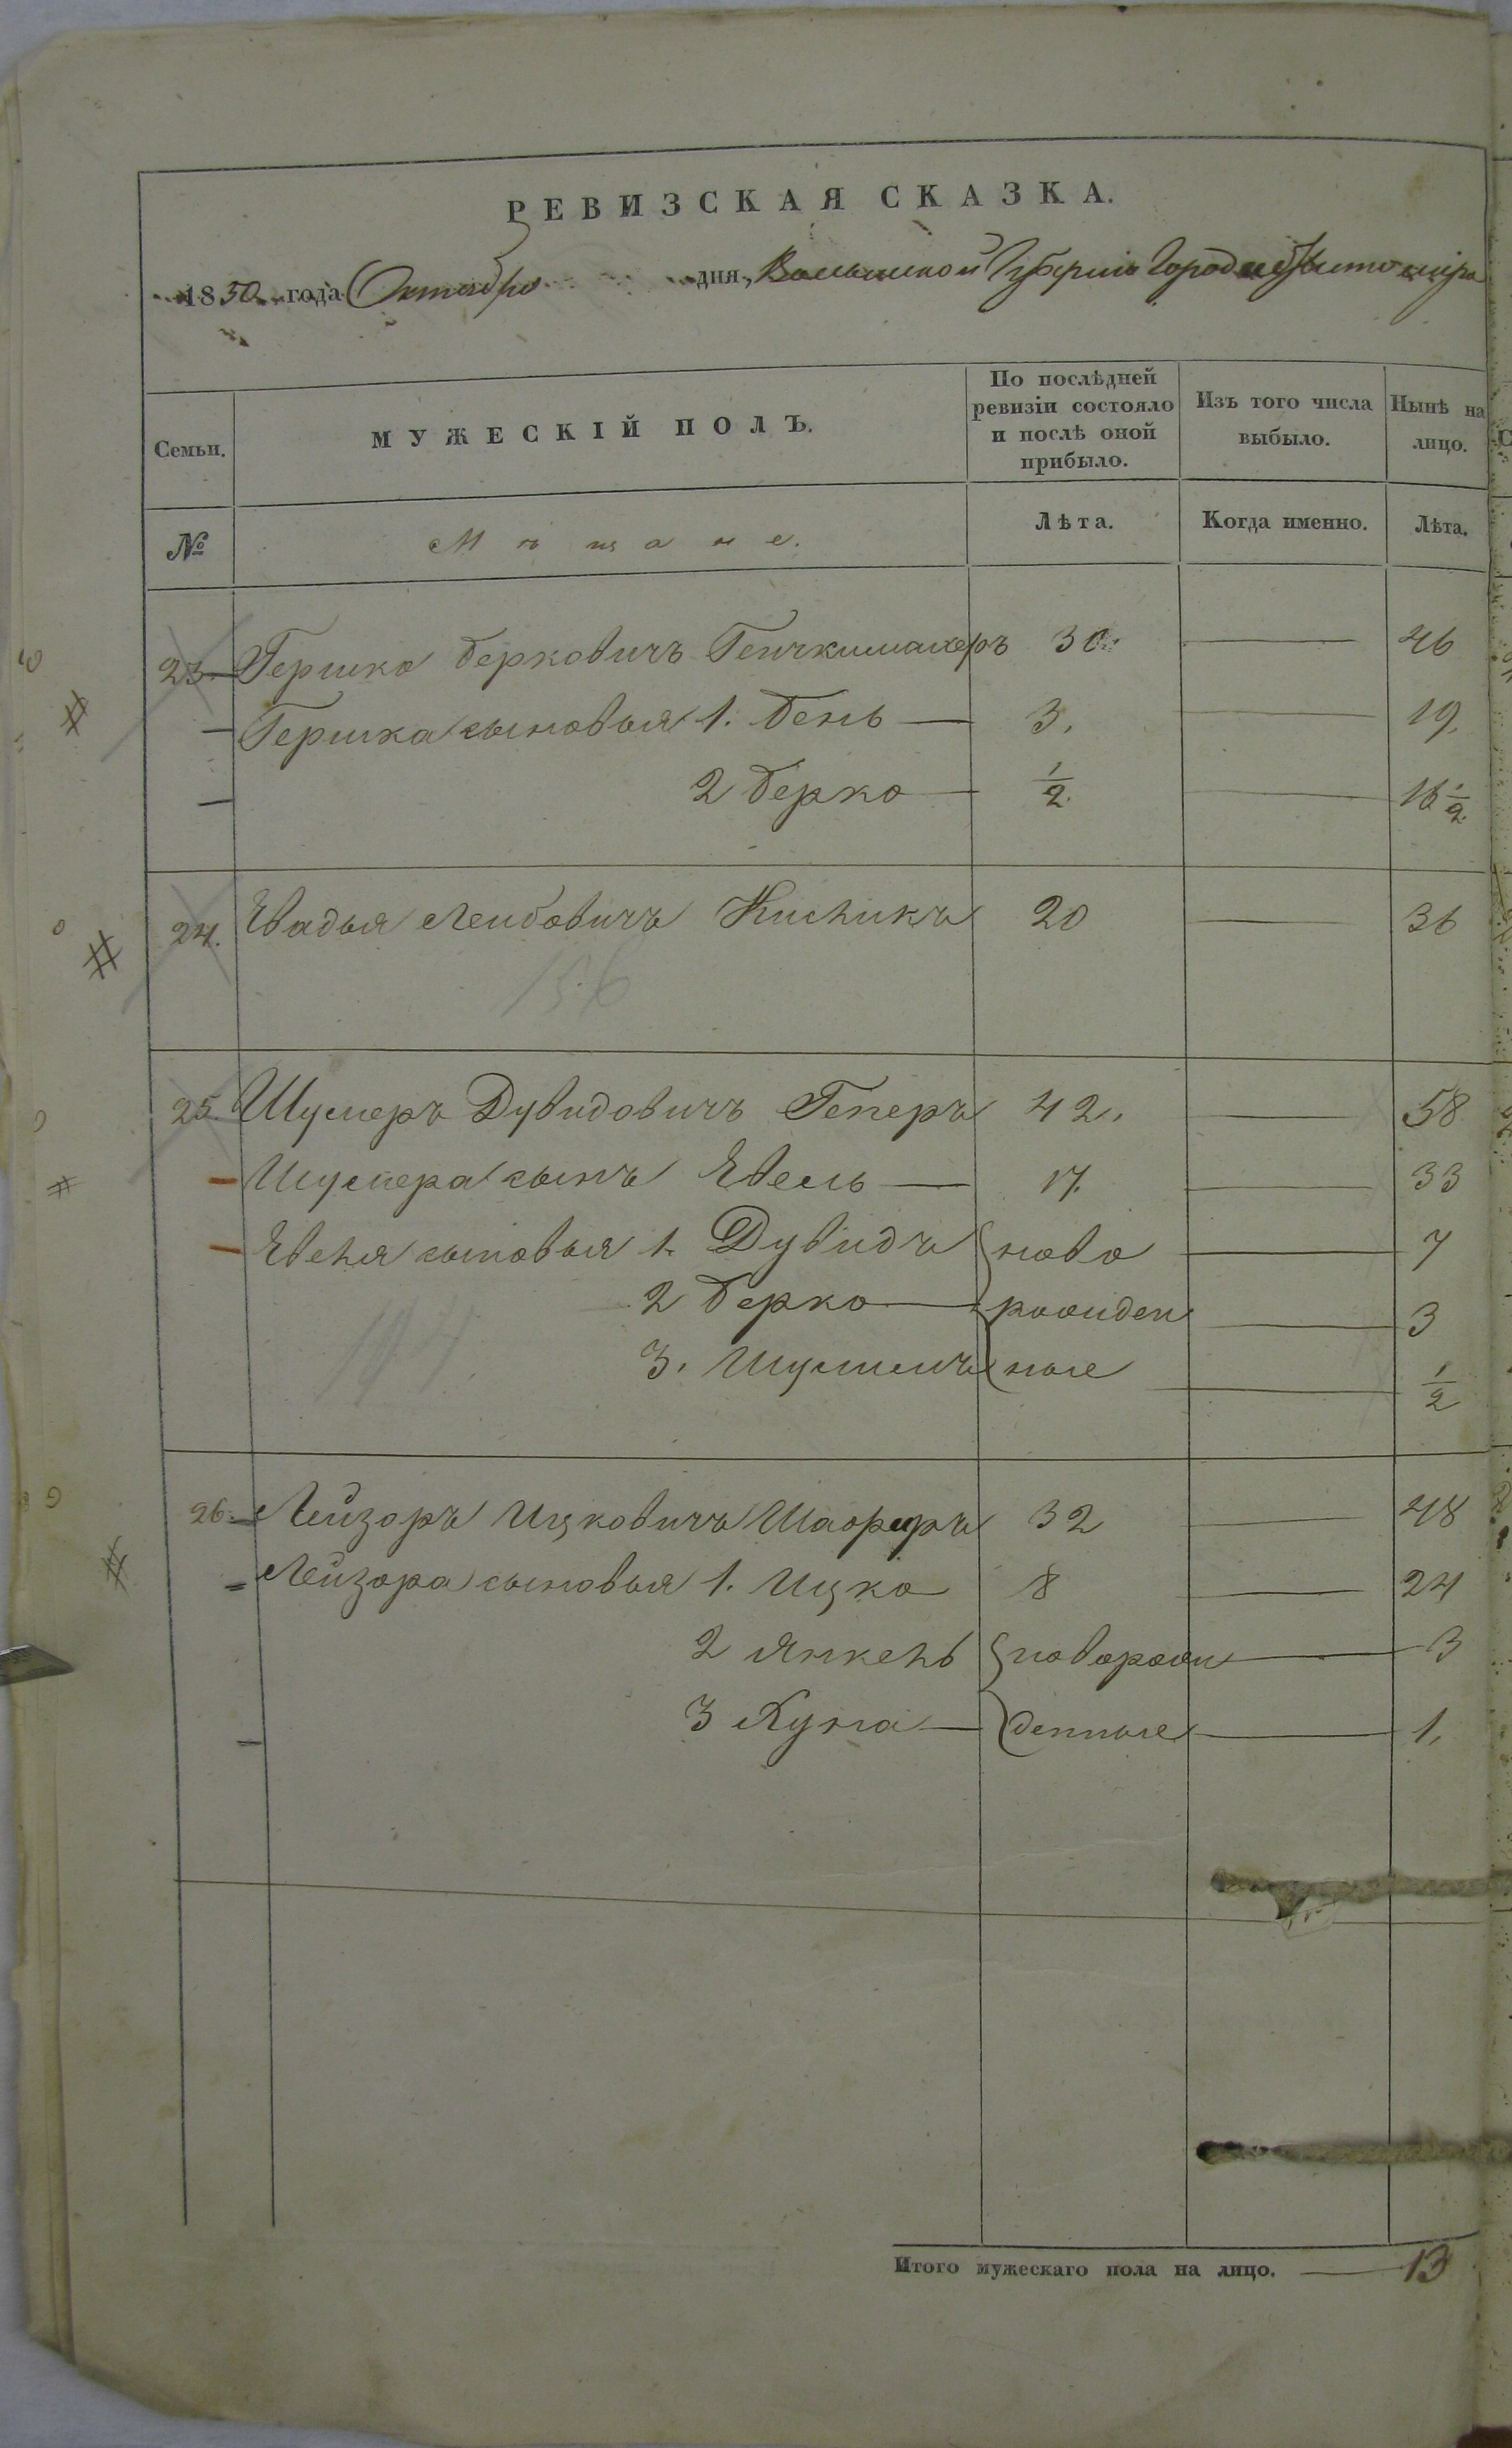 РЕВИЗСКАЯ СКАЗКА.
1850 года Октября дня, Волынской Губерніи Города Житоміра
Семьи. МУЖЕСКІЙ ПОЛЪ. По послѣдней ревизіи состояло и послѣ оной прибыло. Изъ того числа выбыло. Нынѣ на лицо.
№ Мѣщане. Лѣта. Когда именно. Лѣта.
23. Гершко Берковичъ 30. — 46
Гершка сыновья 1. Бень — 3. — 19.
2 Берко — 1/2. — 16 1/2.
24. Явадья Лейбовичъ 20 — 36
156
25. Шулеръ Дувидовичъ Геперъ 42. — 58
сынъ Явель — 17. — 33
Явеля сыновья 1. Дувидъ ново — 7
2 Берко — рожден — 3
3. ные — 1/2
26. Лейзоръ Ицковичъ 32 — 48
Лейзора сыновья 1. Ицко 8 — 24
2 Янкель новорож — 3
3 Хуна — денные — 1.
Итого мужескаго пола на лицо. — 13